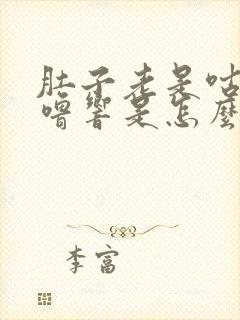 肚子老是咕
噜響是怎麼
李富